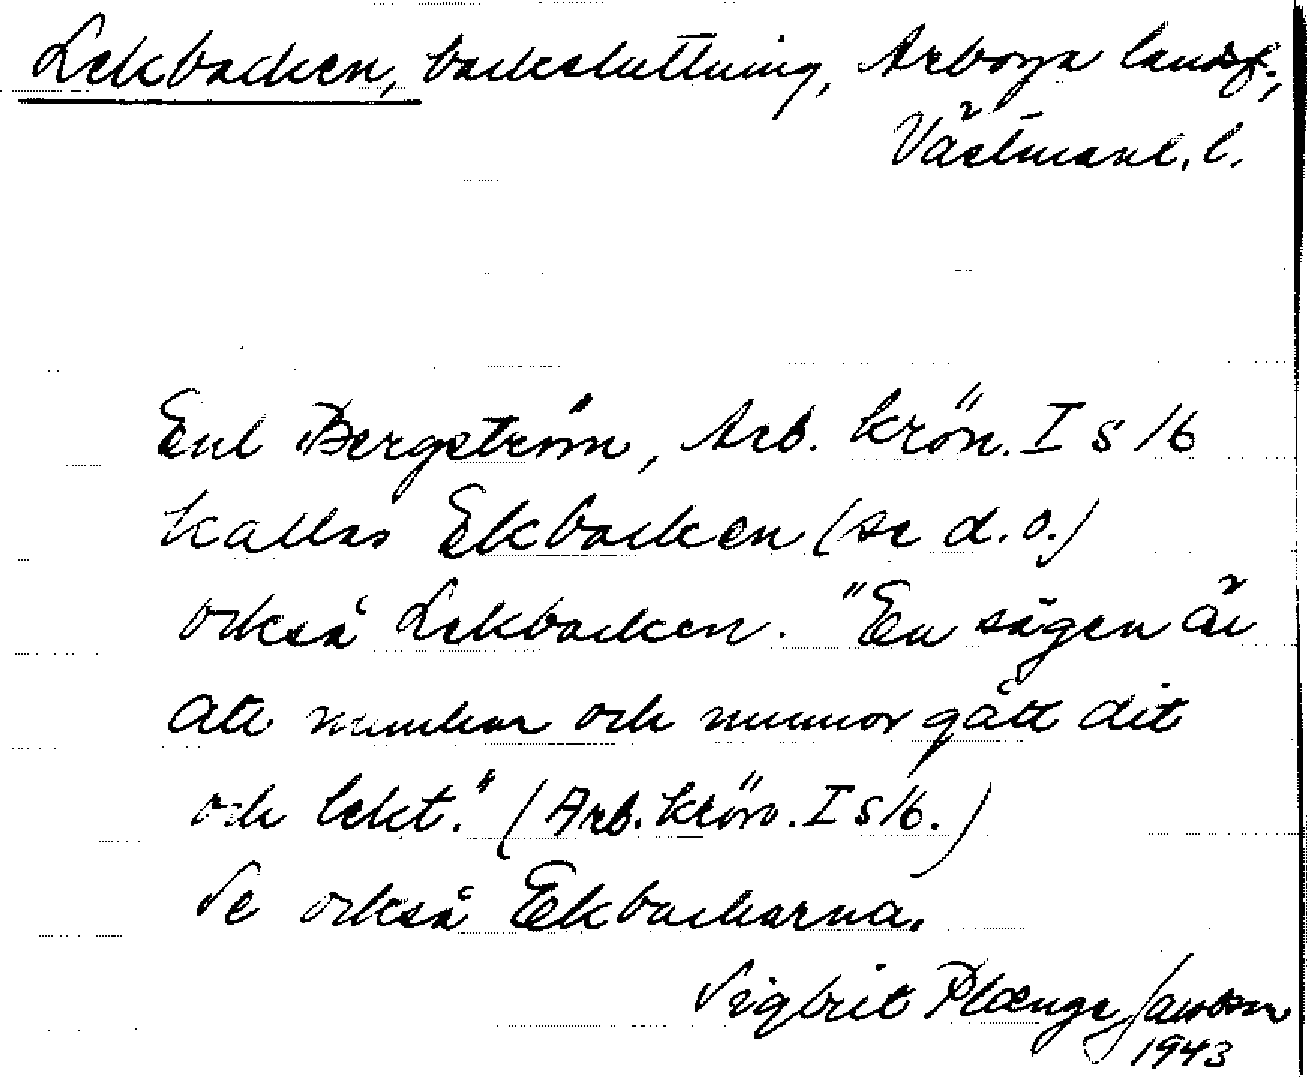 Lekbacken, backsluttning, Arboga landsf.,
Västmanl. l.
Enl Bergström, Arb. krön. I s 16
kallas Ekbacken (se d.o.)
också Lekbacken. "En sägen är
att munkar och nunnor gått dit
och lekt." (Arb. krön. I s 16.)
Se också Ekbackarna.
Sigbrit Plænge Jacobson
1943